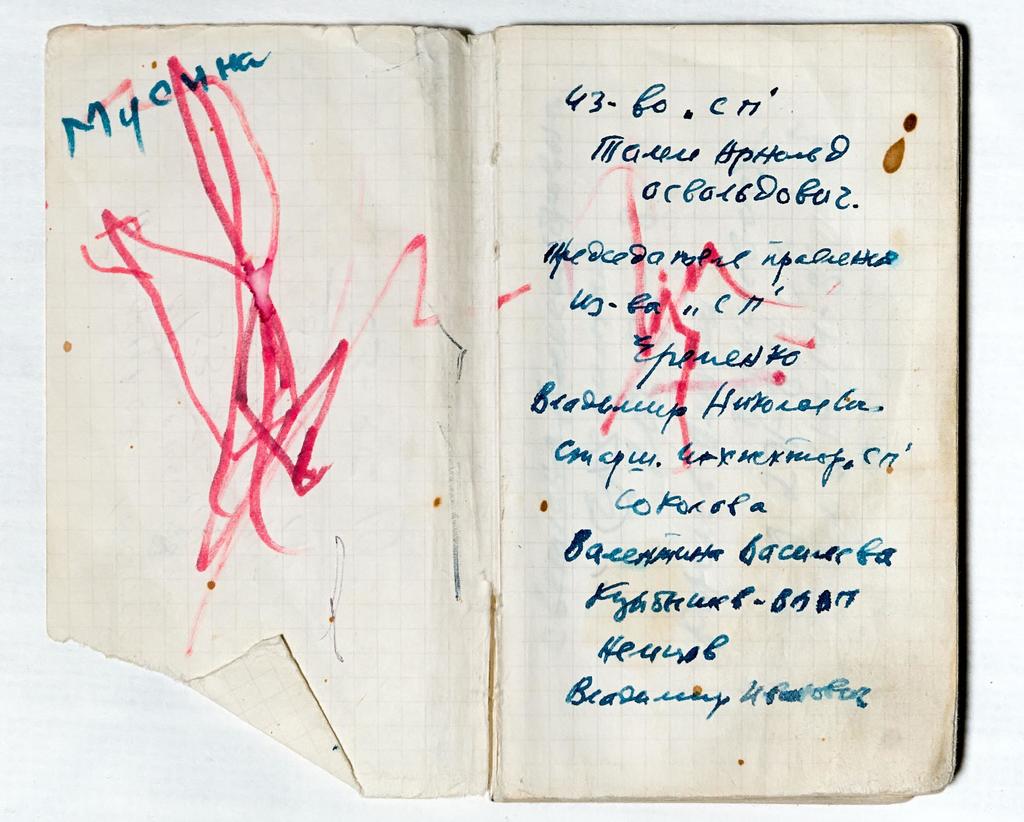 Мусина
Из-во „СП"
Тамм Арнольд
Освальдович.
Председатель правления
Из-ва „СП"
Еременко
Владимир Николаевич.
Старш. „СП"
Соколова
Валентина Васильевна
Немцов
Владимир Иванович